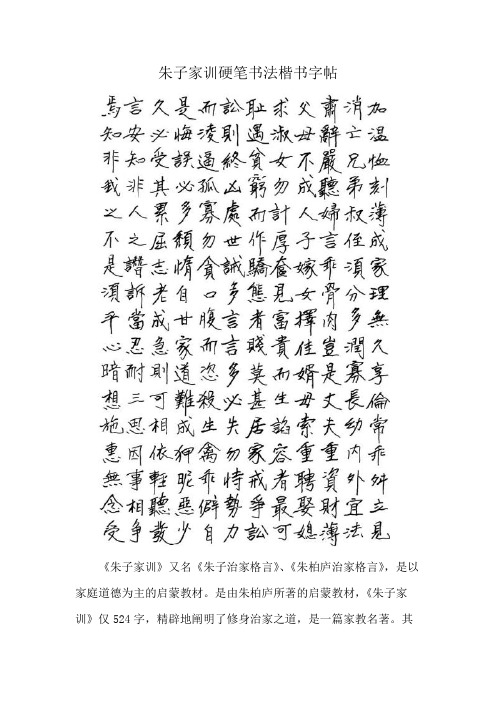 朱子家训硬笔书法楷书字帖
加温恤刻薄成家理無久享倫常乖舛立見
消亡兄弟叔侄須分多潤寡長幼内外宜法
肅辭嚴聽婦言乖骨肉豈是丈夫重資財薄
父母不成人子嫁女擇佳婿毋索重聘娶媳
求淑女勿計厚奩見富貴而生諂容者最可
恥遇貧窮而作驕態者賤莫甚居家戒爭訟
訟則終凶處世誡多言言多必失勿恃勢力
而淩逼孤寡勿貪口腹而恣殺生禽乖僻自
是悔誤必多頹惰自甘家道難成狎昵惡少
久必受其累屈志老成急則可相依輕聽發
言安知非人之譖訴當忍耐三思因事相爭
焉知非我之不是須平心暗想施惠無念受
《朱子家训》又名《朱子治家格言》、《朱柏庐治家格言》，是以
家庭道德为主的启蒙教材。是由朱柏庐所著的启蒙教材，《朱子家
训》仅 524 字，精辟地阐明了修身治家之道，是一篇家教名著。其